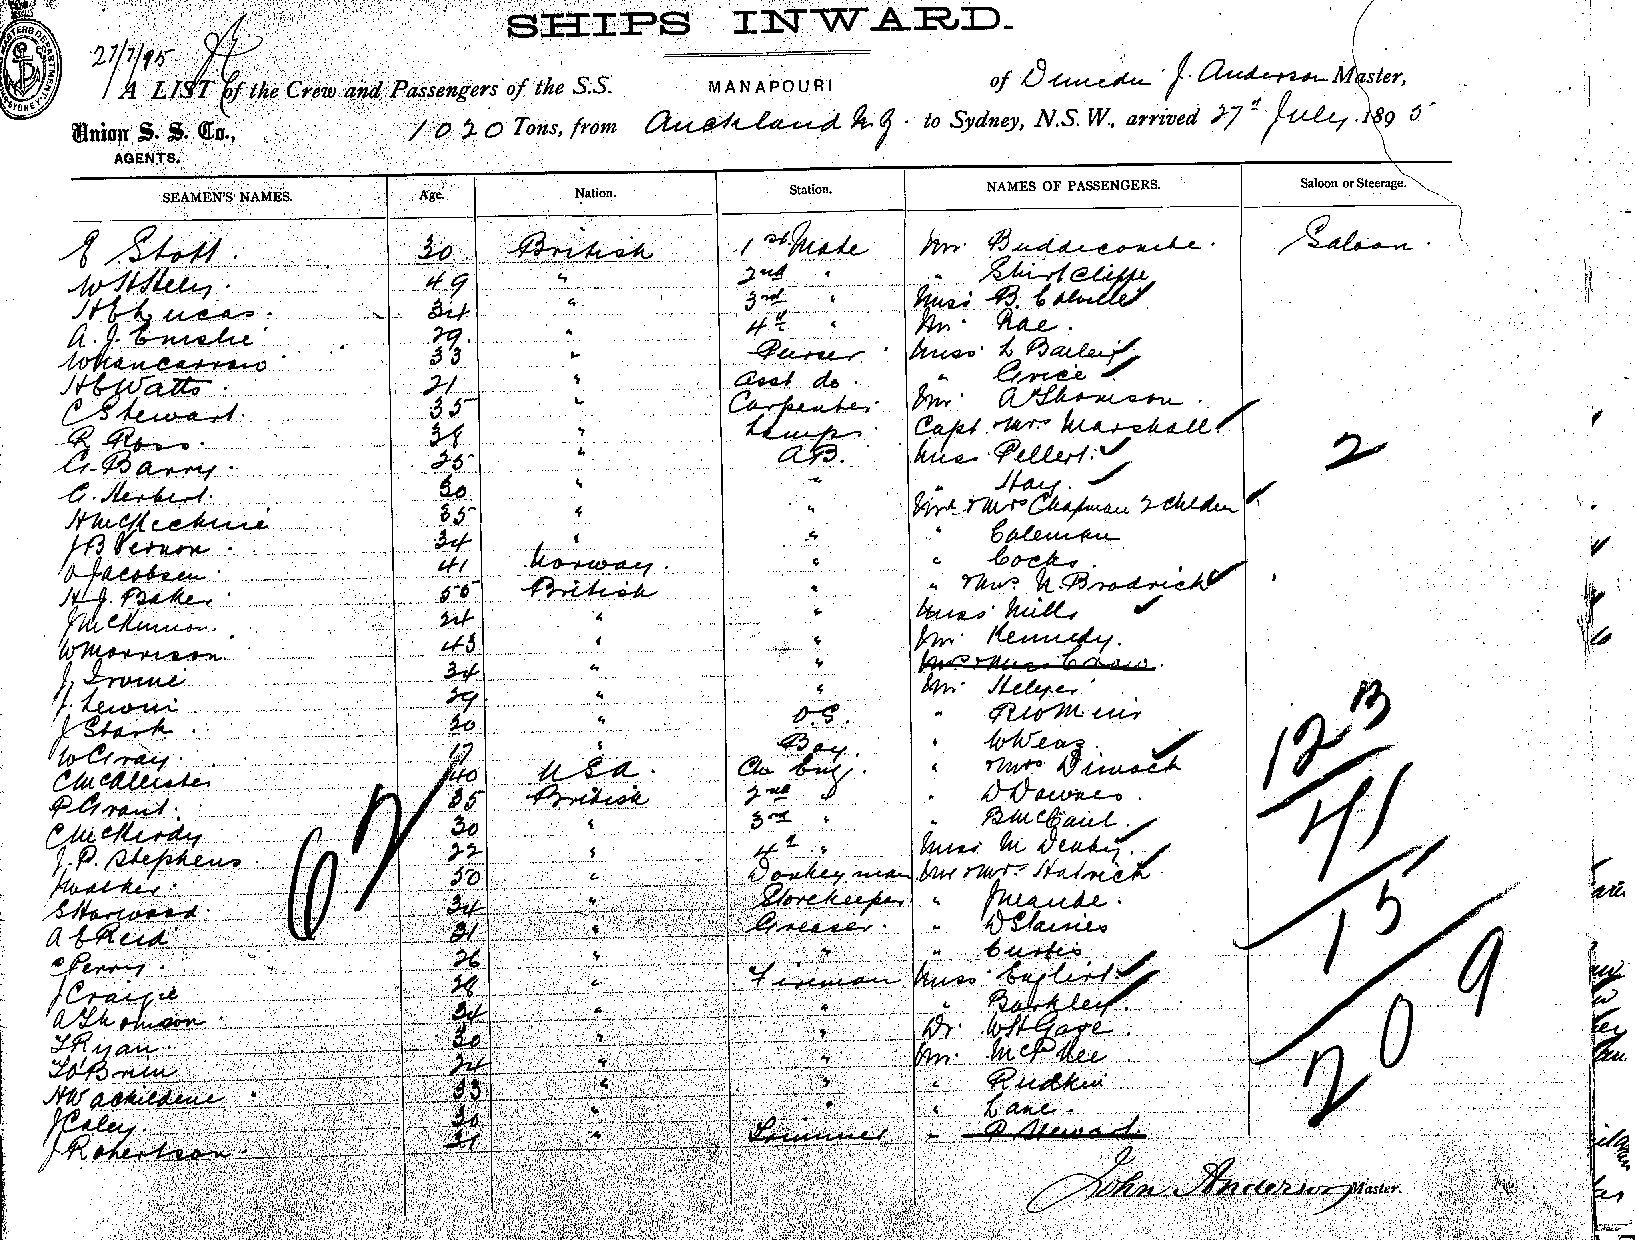 SHIPS INWARD.
27/7/95
A LIST of the Crew and Passengers of the S.S. MANAPOURI of Dunedin J. Anderson Master,
Union S. S. Co., 1020 Tons, from Auckland N Z. to Sydney, N.S.W., arrived 27th July 1895
AGENTS.
SEAMEN'S NAMES. Age. Nation. Station. NAMES OF PASSENGERS. Saloon or Steerage.
E Stott. 30 British 1st Mate Mr. Buddecombe. Saloon.
49 " 2nd " " Shirtcliffe
H E Lucas. 34 " 3rd " Miss B. Colville
A. J. Emslie 29. " 4th " Mr. Rae.
33 " Purser Miss L Bailey
H E Watts. 21 " Asst do. " Grice
C Stewart. 35 " Carpenter Mr. A Thomson.
R Ross. 38 " Lamps Capt. Mrs Marshall
G. Barry. 25 " A.B. Miss Pellert.
C. Herbert. 30 " " " Hay.
H McKechnie 35 " " Mr & Mrs Chapman 2 children
J B Vernon. 34 " " " Coleman
O Jacobsen. 41 Norway. " " Cocks.
H. J. Baker. 55 British " " & Mrs N. Brodrick
J McKinnon. 24 " " Miss Mills
W Morrison. 43 " " Mr. Kennedy.
J. Irvine 34 " "
29 " " Mr. Helyer
J Stark. 20 " O.S. "
W Gray. 17 " Boy. "
C McAllister 40 U S A. Ch Eng. " & Mrs Dimock
P Grant. 35 British 2nd " " D Downes.
C McKirdy 30 " 3rd " " B McCaul.
J. P. Stephens 22 " 4th " Miss M Denby.
J Walker. 50 " Donkeyman Mr & Mrs Hatrick
S Harwood. 34 " Storekeeper "
A E Reid 31 " Greaser. " D Staines
C Perry. 26 " " " Curtis
J Craigie 28 " Fireman Miss Englert
A Thomson 34 " " " Barkley
T Ryan. 30 " " Dr.
T O'Brien 24 " " Mr. McPhee
33 " " " Rudkin
J Coley. 30 " " " Lane.
J Robertson. 31 " Trimmer " A Stewart.
2
67
123
41
15
209
John Anderson Master.